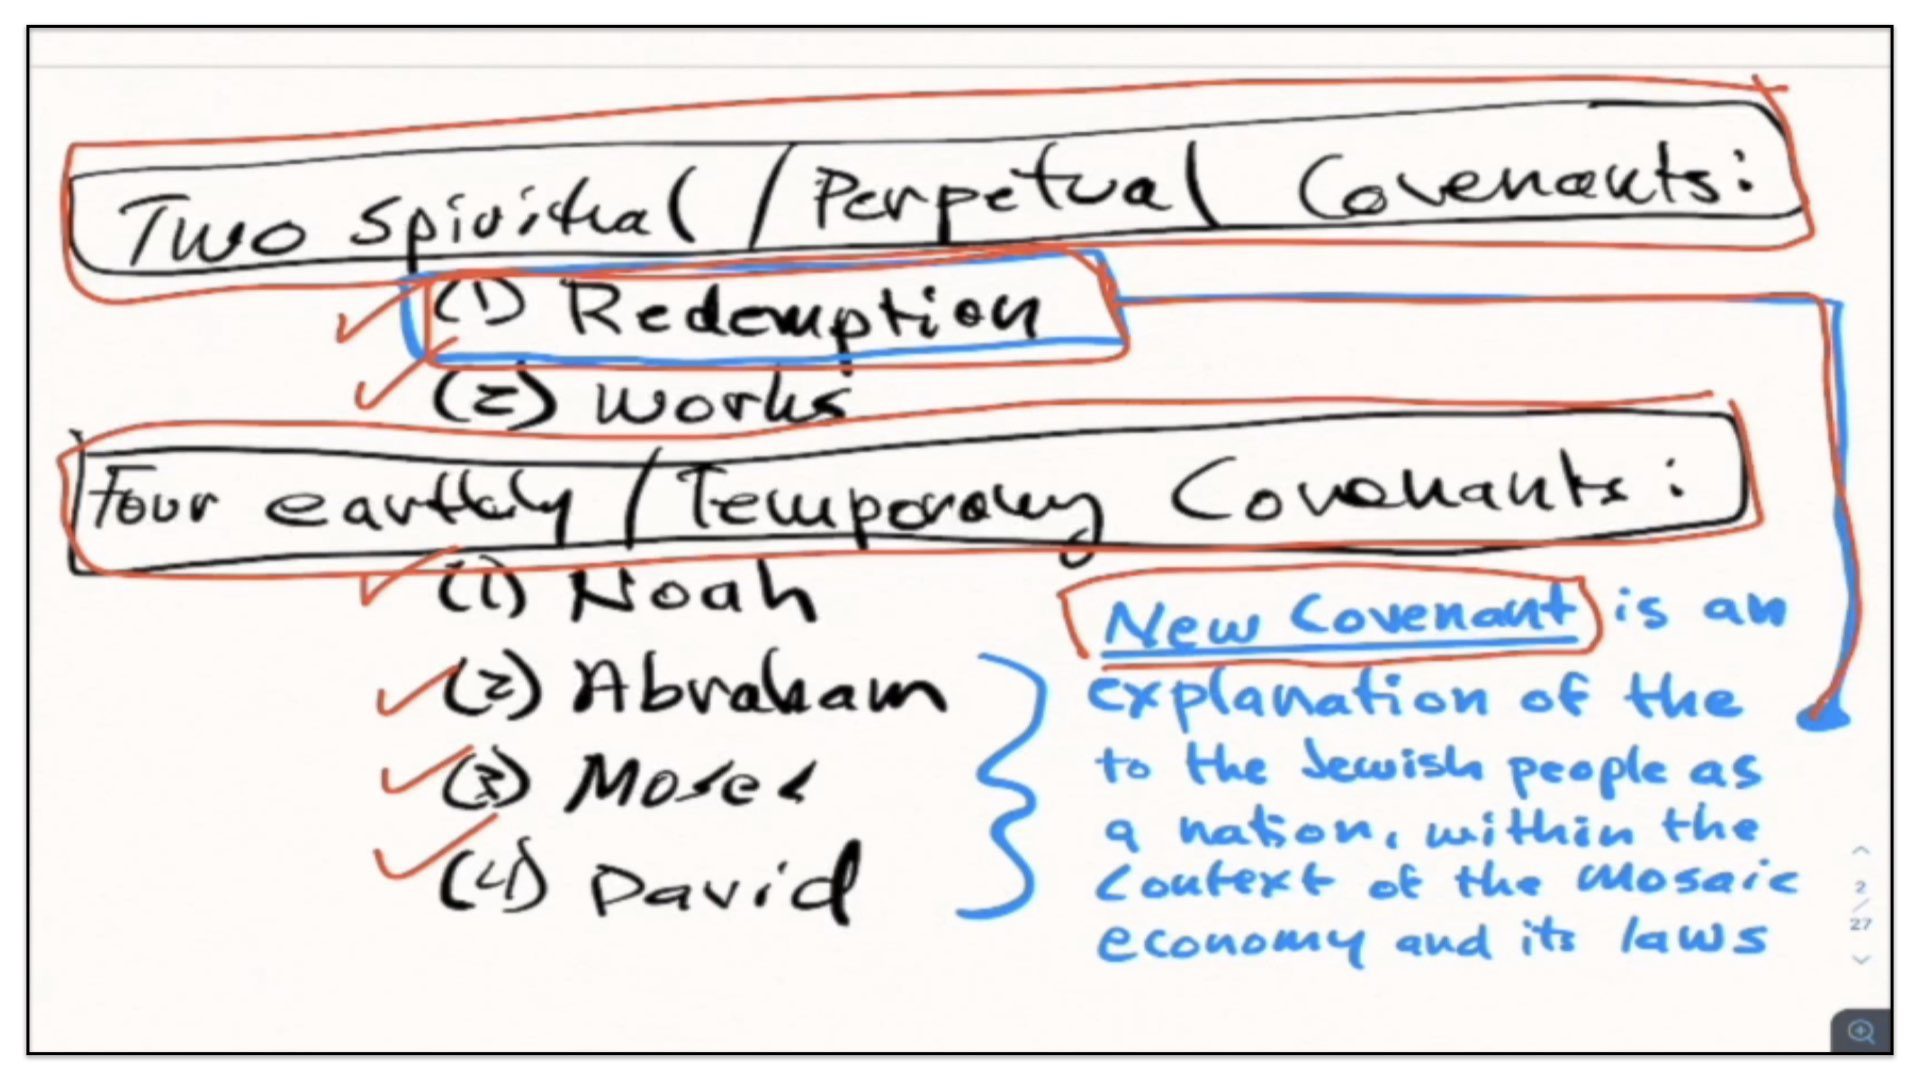 Two Spiritual / Perpetual Covenants:
(1) Redemption
(2) Works
Four earthly / Temporary Covenants:
(1) Noah
(2) Abraham
(3) Moses
(4) David
New Covenant is an
explanation of the
to the Jewish people as
a nation, within the
context of the Mosaic
economy and its laws
2
/
27